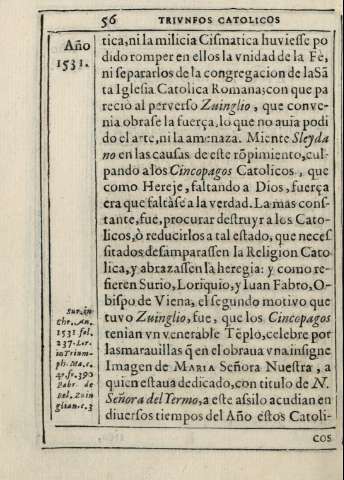 56 TRIVNFOS CATOLICOS
Año
1531.
tica,ni la milicia Cismatica huviesse po
dido romper en ellos la vnidad de la Fè,
ni separarlos de la congregacion de la Sã
ta Iglesia Catolica Romana; con que pa
reciò al perverso Zuinglio, que conve-
nia obrase la fuerça, lo que no auia podi
do el arte, ni la amenaza. Miente Sleyda
no en las causas de este rõpimiento, cul-
pando a los Cincopagos Catolicos, que
como Hereje, faltando a Dios, fuerça
era que faltàse a la verdad. La mas cons-
tante, fue, procurar destruyr a los Cato-
licos, ò reducirlos a tal estado, que neces
sitados desamparassen la Religion Cato
lica, y abrazassen la heregia: y como re-
fieren Surio, Loriquio, y Iuan Fabro, O-
bispo de Viena, el segundo motivo que
tuvo Zuinglio, fue, que los Cincopagos
tenian vn venerable Tẽplo, celebre por
las marauillas q̃ en el obraua vna insigne
Imagen de MARIA Señora Nuestra, a
quien estaua dedicado, con titulo de N.
Señora del Yermo, a este assilo acudian en
diuersos tiempos del Año estos Catoli-
cos
Sur. in
Chr. An.
1531 fol.
237. Lor.
in Trium-
ph. Ma. c.
fr. 390
Fabr. de
Bel. Zuin
glian. c. 3